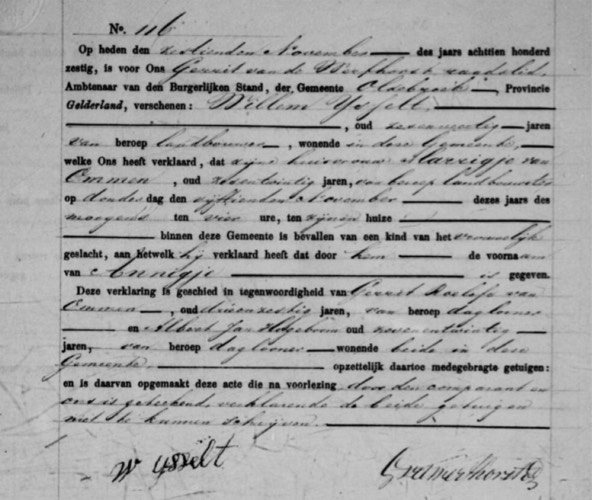 No. 116
Op heden den zestienden November des jaars achttien honderd
zestig, is voor Ons Gerrit van de Werfhorst raadslid,
Ambtenaar van den Burgerlijken Stand, der Gemeente Oldebroek, Provincie
Gelderland, verschenen: Willem IJsselt
, oud jaren
van beroep landbouwer, wonende in deze Gemeente,
welke Ons heeft verklaard, dat zijne huisvrouw Marrigje van
Ommen, oud jaren, van beroep landbouwster
op donderdag den vijftienden November dezes jaars des
morgens ten vier ure, ten zijnen huize
binnen deze Gemeente is bevallen van een kind van het vrouwelijk
geslacht, aan hetwelk hij verklaard heeft dat door hem de voornaam
van Annigje is gegeven.
Deze verklaring is geschied in tegenwoordigheid van Gerrit Roelofs van
Ommen, oud drieenzestig jaren, van beroep daglooner
en Albert Jan Hogeboom oud jaren, van beroep daglooner wonende beide in deze
Gemeente opzettelijk daartoe medegebragte getuigen:
en is daarvan opgemaakt deze acte die na voorlezing door den comparant en
ons is geteekend, verklarende de beide getuigen
niet te kunnen schrijven.
W IJsselt